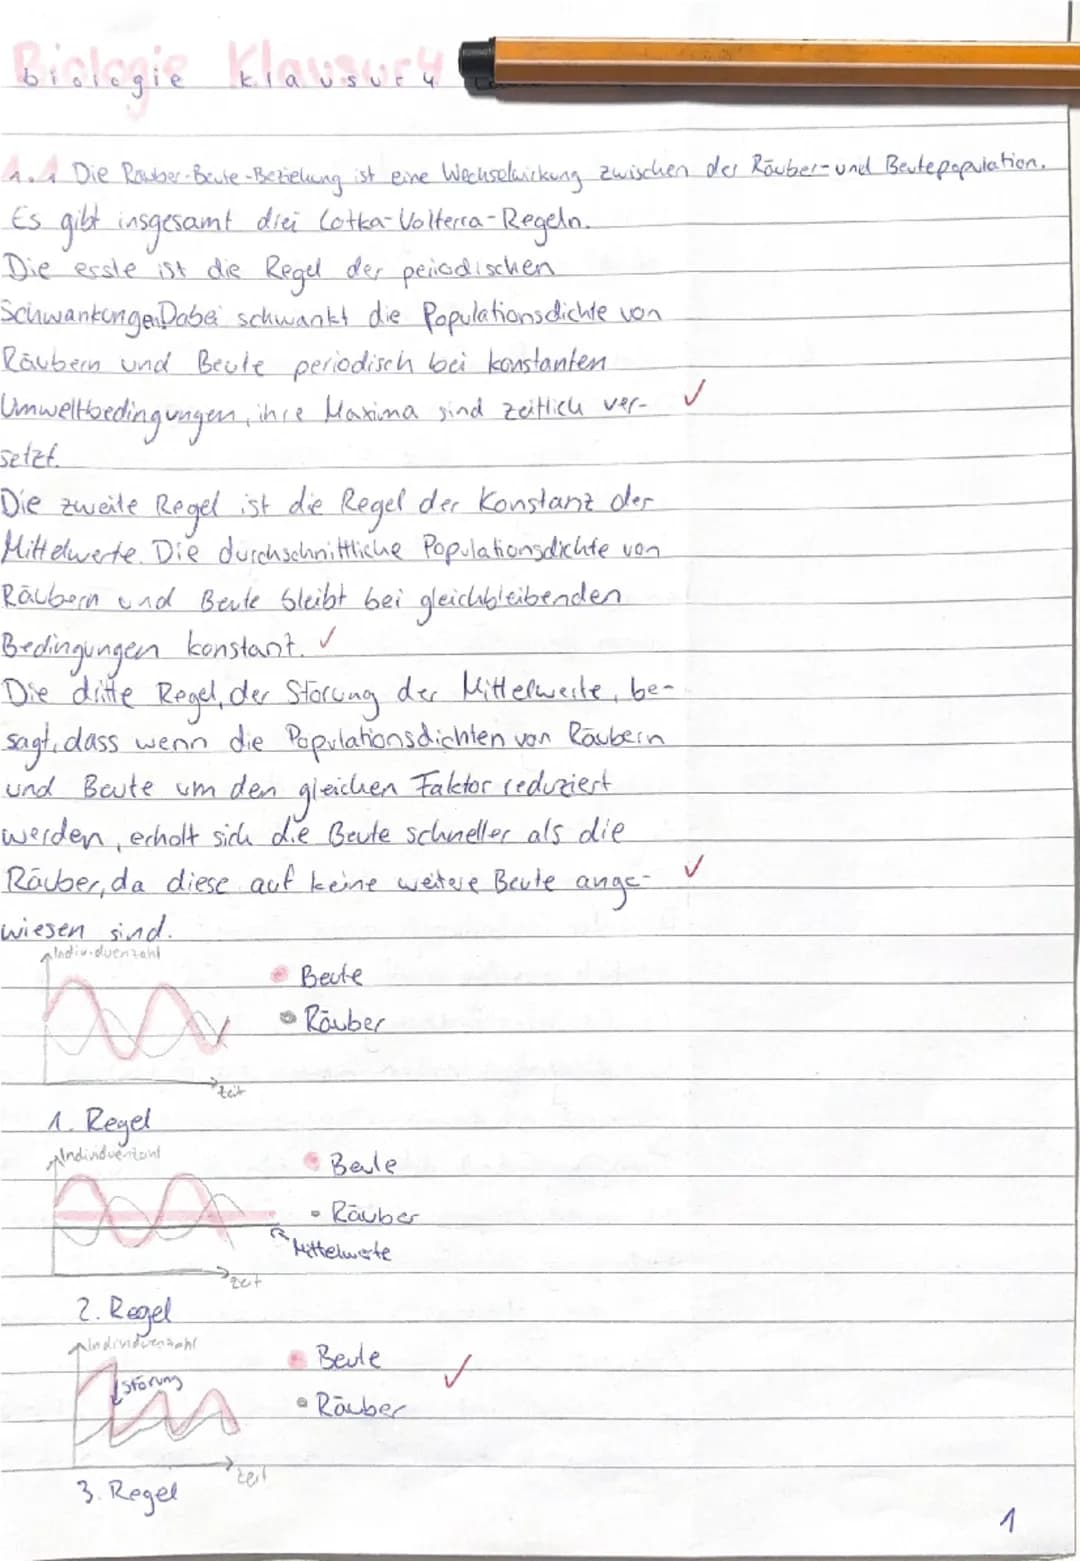 Biologie Klausur 4
1.1 Die Räuber-Beute-Beziehung ist eine Wechselwirkung zwischen der Räuber- und Beutepopulation.
Es gibt insgesamt drei Lotka-Volterra-Regeln.
Die erste ist die Regel der periodischen
Schwankungen. Dabei schwankt die Populationsdichte von
Räubern und Beute periodisch bei konstanten
Umweltbedingungen, ihre Maxima sind zeitlich ver-
setzt.
Die zweite Regel ist die Regel der Konstanz der
Mittelwerte. Die durchschnittliche Populationsdichte von
Räubern und Beute bleibt bei gleichbleibenden
Bedingungen konstant.
Die dritte Regel, der Störung der Mittelwerte, be-
sagt, dass wenn die Populationsdichten von Räubern
und Beute um den gleichen Faktor reduziert
werden, erholt sich die Beute schneller als die
Räuber, da diese auf keine weitere Beute ange-
wiesen sind.
Individuenzahl
Beute
Räuber
Zeit
1. Regel
Individuenzahl
Beute
Räuber
Mittelwerte
Zeit
2. Regel
Individuenzahl
Beute
Störung
Räuber
Zeit
3. Regel
1